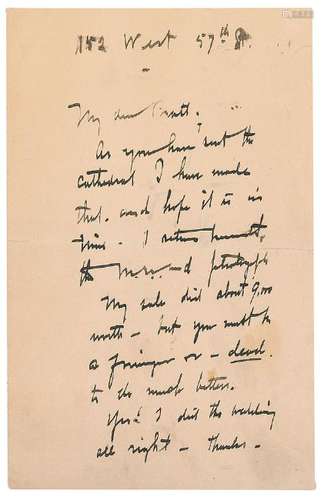 152 West 57th St.
My dear Pratt.
As you have sent the
cathedral I have made
that. and hope it is in
time. I return
the and
My sale did about 9,000
worth — but you must be
a or — dead.
to do much better.
Yes! I did the wedding
all right — thanks —